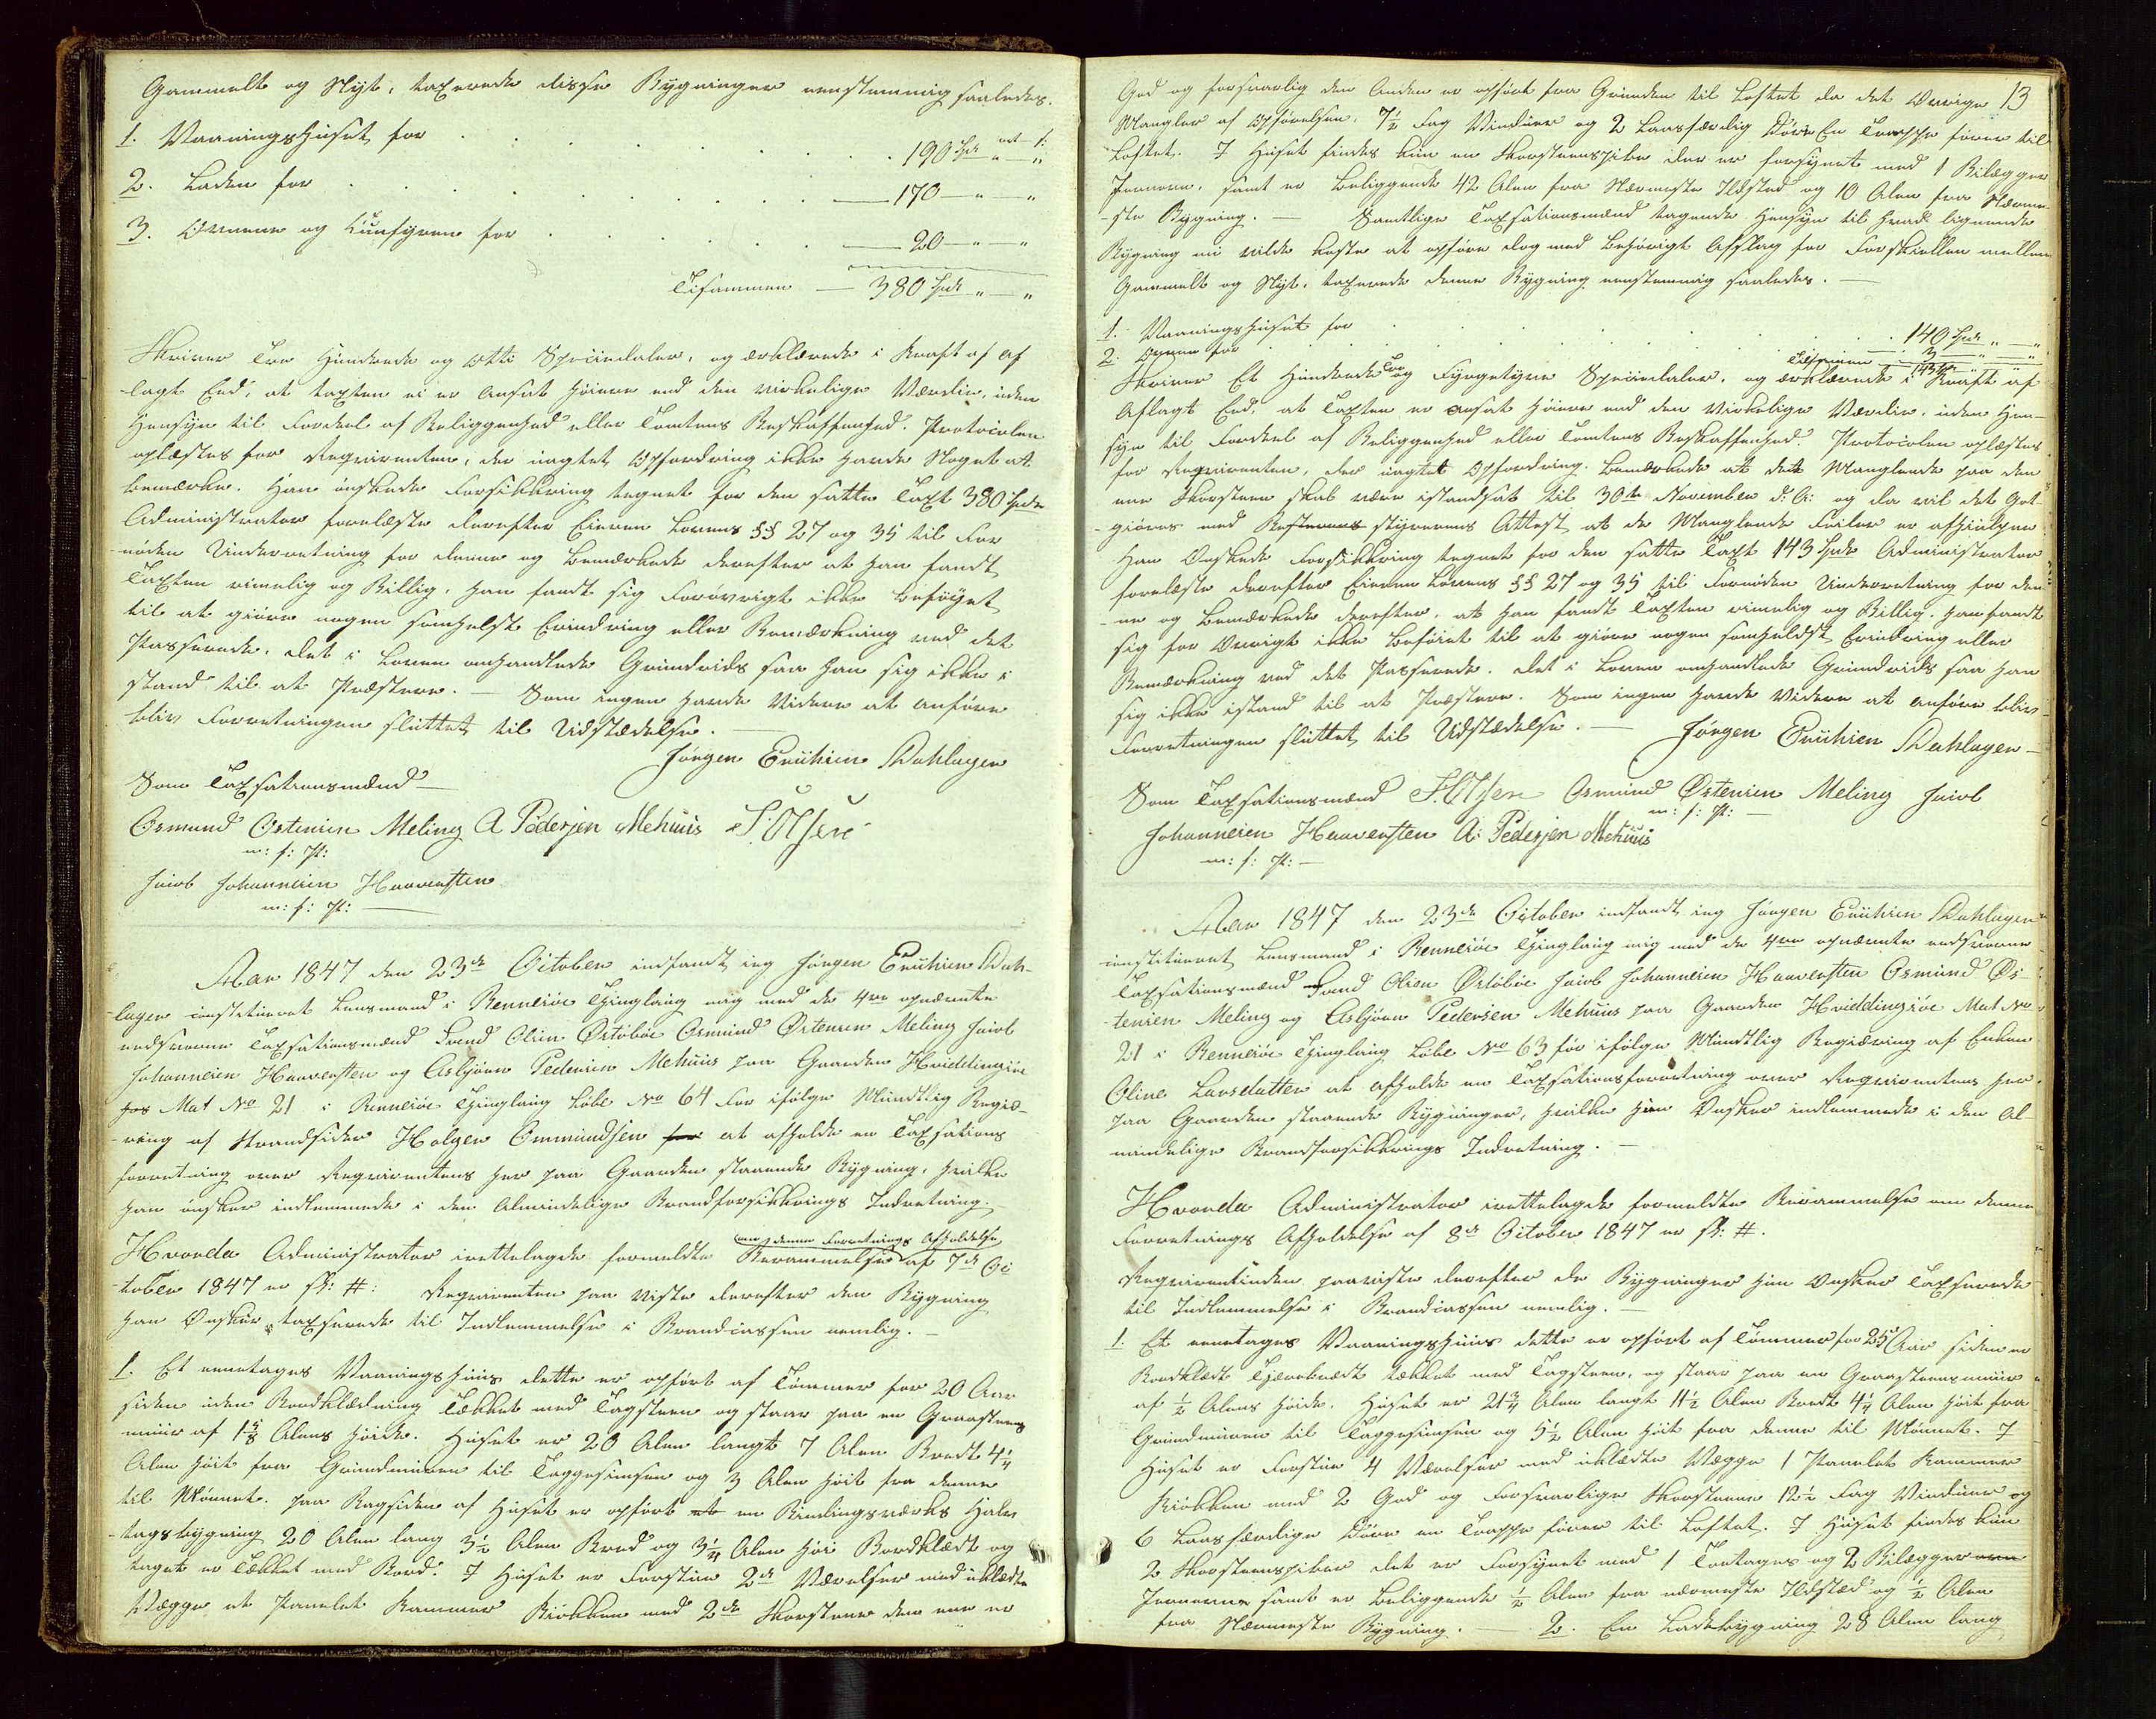 Gammelt og Nyt, taxerede disse Bygninger eenstemmig saaledes.
1. Vaaningshuset for . . . . . 190 Spd " "
2. Laden for . . . . . 170 — " — "
3. Ovnene og Kunsyren for . . . . 20 — " — "
Tilsammen — 380 Spd " — "
Skriver Tre Hundrede og Otti Speciedaler, og erklærede i Kraft af af
-lagt Eed, at taxten ei er ansat høiere end den virkelige Værdie, uden
Hensyn til Fordeel af Beliggenhed eller Tomtens Beskaffenhed. Protocolen
oplæstes for Reqvirenten, der uagtet Opfordring ikke havde Noget at
bemærke. Han ønskede Forsikkring tegnet for den satte Taxt 380 Spdr
Administrator forelæste derefter Eieren Lovens §§ 27 og 35 til For
-nøden Underretning for denne og bemærkede derefter at han fandt
Taxten rimelig og Billig, han fandt sig forøvrigt ikke beføyet
til at giøre nogen somhelst Erindring eller Bemærkning ved det
Passerede, det i Loven omhandlede Grundrids saa han sig ikke i
stand til at Præstere. — Som ingen havde Videre at anføre
blev Forretningen sluttet til Udstædelse. —
Jørgen Erichsen Dahlagen
Som Taxsationsmænd —
Osmund Ostensen Meling A Pedersen Mehuus S. Olsen
m: f: P:
Jacob Johannesen Haavensten
m: f: P: —
Aar 1847 den 23de October indfandt ieg Jørgen Erichsen Dah-
lagen constitueret Lensmand i Rennesöe Thinglaug mig med de 4re opnævnte
eedsvorne Taxsationsmænd Svend Olsen Østøbøe Osmund Østensen Meling Jacob
Johannesen Haavensten og Asbjørn Pedersen Mehuus paa Gaarden Hviddingsöe
Mat No 21 i Rennesöe Thinglaug Løbe No 64 for ifølge Mundtlig Begiæ-
ring af Strandsider Holger Ommundsen for at afholde en Taxsations
forretning over Reqvirentens her paa Gaarden staaende Bygning, hvilke
han ønsker indlemmede i den Almindelige Brandforsikkrings Indretning.
om denne Forretnings Afholdelse
Hvorda Administrator irettelagde formeldte Berammelse af 7de Oc
-tober 1847 er sk: #: Reqvirenten paa viste derefter den Bygning
han Ønsker taxserede til Indlemmelse i Brandcassen nemlig. —
1. Et eenetages Vaaningshuus dette er opført af Tømmer for 20 Aar
siden uden Bordklædning Tækket med Tagsteen og staar paa en Graasteens
muur af 1 5/8 Alens høide. Huset er 20 Alen langt 7 Alen Bredt 4 1/4
Alen høit fra Grundmuren til Taggesimsen og 3 Alen høit fra denne
til Mønnet. paa Bagsiden af Huset er opført et en Bindingsværks Halv
-tagsbygning 20 Alen lang 3 1/2 Alen Bred og 3 1/4 Alen høi Bordklædt og
taget er Tækket med Bord. I Huset er Forstue 2de Værelser med uklædte
Vægge et Panelet Kammer Kiøkken med 2de Skorstene den ene er
13
God og forsvarlig den Anden er opført fra Grunden til Loftet da det Øvrige
Mangler af Opførelsen. 7 1/2 Fag Vinduer og 2 Laasfærdig Døre En Trappe fører til
Loftet. I Huset findes kun en Skorsteenspibe der er forsynet med 1 Bilægger
Jernovn, samt er beliggende 42 Alen fra Nærmeste Ildsted og 10 Alen fra Nærme-
-ste Bygning. — Samtlige Taxsationsmænd tagende Hensyn til hvad lignende
Bygning nu vilde koste at opføre dog med behørigt Afslag for Forskiellen mellem
Gammelt og Nyt, taxerede denne Bygning eenstemmig saaledes. —
1. Vaaningshuset for . . . . . 140 Spd " — "
2. Ovnen for . . . . 3 — " — "
Tilsammen — 143 Spd " "
Skriver Et Hundrede Tre og Fyrgetyve Speciedaler, og erklærede i Kraft af
Aflagt Eed, at Taxten er ansat høiere end den Virkelige Værdie, uden Hen-
syn til Fordeel af Beliggenhed eller Tomtens Beskaffenhed. Protocolen oplæstes
for Reqvirenten, der uagtet Opfordring. bemærkede at det Manglende paa den
ene Skorsteen skal være istandsat til 30te November d: A: og da vil det Got-
-giøres med Bestyrerens Attest at de Manglende Feiler er afhiulpne
Han Ønskede Forsikkring tegnet for den satte Taxt 143 Spdr Administrator
forelæste derefter Eieren Lovens §§ 27 og 35 til Fornøden Underretning for den
-ne og bemærkede derefter, at han fandt Taxten rimelig og Billig. han fandt
sig for Øvrigt ikke beføiet til at giøre nogen somheldst Erindring eller
Bemærkning ved det Passerede. det i Loven omhandlede Grundrids saa han
sig ikke istand til at Præstere. Som ingen havde Videre at anføre blev
Forretningen sluttet til Udstædelse. — Jørgen Erichsen Dahlagen —
Som Taxsationsmænd S. Olsen Osmund Østensen Meling Jacob
m: f: P: —
Johannesen Haavensten A: Pedersen Mehuus
m: f: P: —
Aar 1847 den 23de October indfandt ieg Jørgen Erichsen Dahlagen
constitueret Lensmand i Rennesöe Thinglaug mig med de 4re opnævnte eedsvorne
Taxsationsmænd Svend Olsen Østøbøe Jacob Johannesen Haavensten Osmund Øs-
tensen Meling og Asbjørn Pedersen Mehuus paa Gaarden Hviddingsöe Mat No
21 i Rennesöe Thinglaug Løbe No 63 for ifølge Mundtlig Begiæring af Enken
Oline Larsdatter at afholde en Taxsationsforretning over Reqvirentens her
paa Gaarden staaende Bygninger, hvilke hun Ønsker indlemmede i den Al-
mindelige Brandforsikkrings Indretning. —
Hvorda Administrator irettelagde formeldte Berammelse om denne
Forretnings Afholdelse af 8de October 1847 er sk: #.
Reqvirentinden paaviste derefter de Bygninger hun Ønsker Taxserede
til Indlemmelse i Brandcassen nemlig. —
1. Et eenetages Vaaningshuus dette er opført af Tømmer for 25 Aar siden er
Bordklædt Tjærebrædt tækket med Tagsteen, og staar paa en Graasteensmuur
af 1/2 Alens høide. Huset er 21 3/4 Alen langt 11 1/2 Alen Bredt 4 1/4 Alen høit fra
Grundmuren til Taggesimsen og 5 1/2 Alen høit fra denne til Mønnet. I
Huset er Forstue 4 Værelser med uklædte Vægge 1 Panelet Kammer
Kiøkken med 2 God og Forsvarlige Skorstene 12 1/2 Fag Vinduer og
6 Laasfærdige Døre en Trappe fører til Loftet. I Huset findes kun
2 Skorsteenspiber det er Forsynet med 1 Toetages og 2 Bilægger
Jernovne samt er beliggende 1/2 Alen fra nærmeste Ildsted og 1/2 Alen
fra Nærmeste Bygning. — 2. En Ladebygning 28 Alen lang